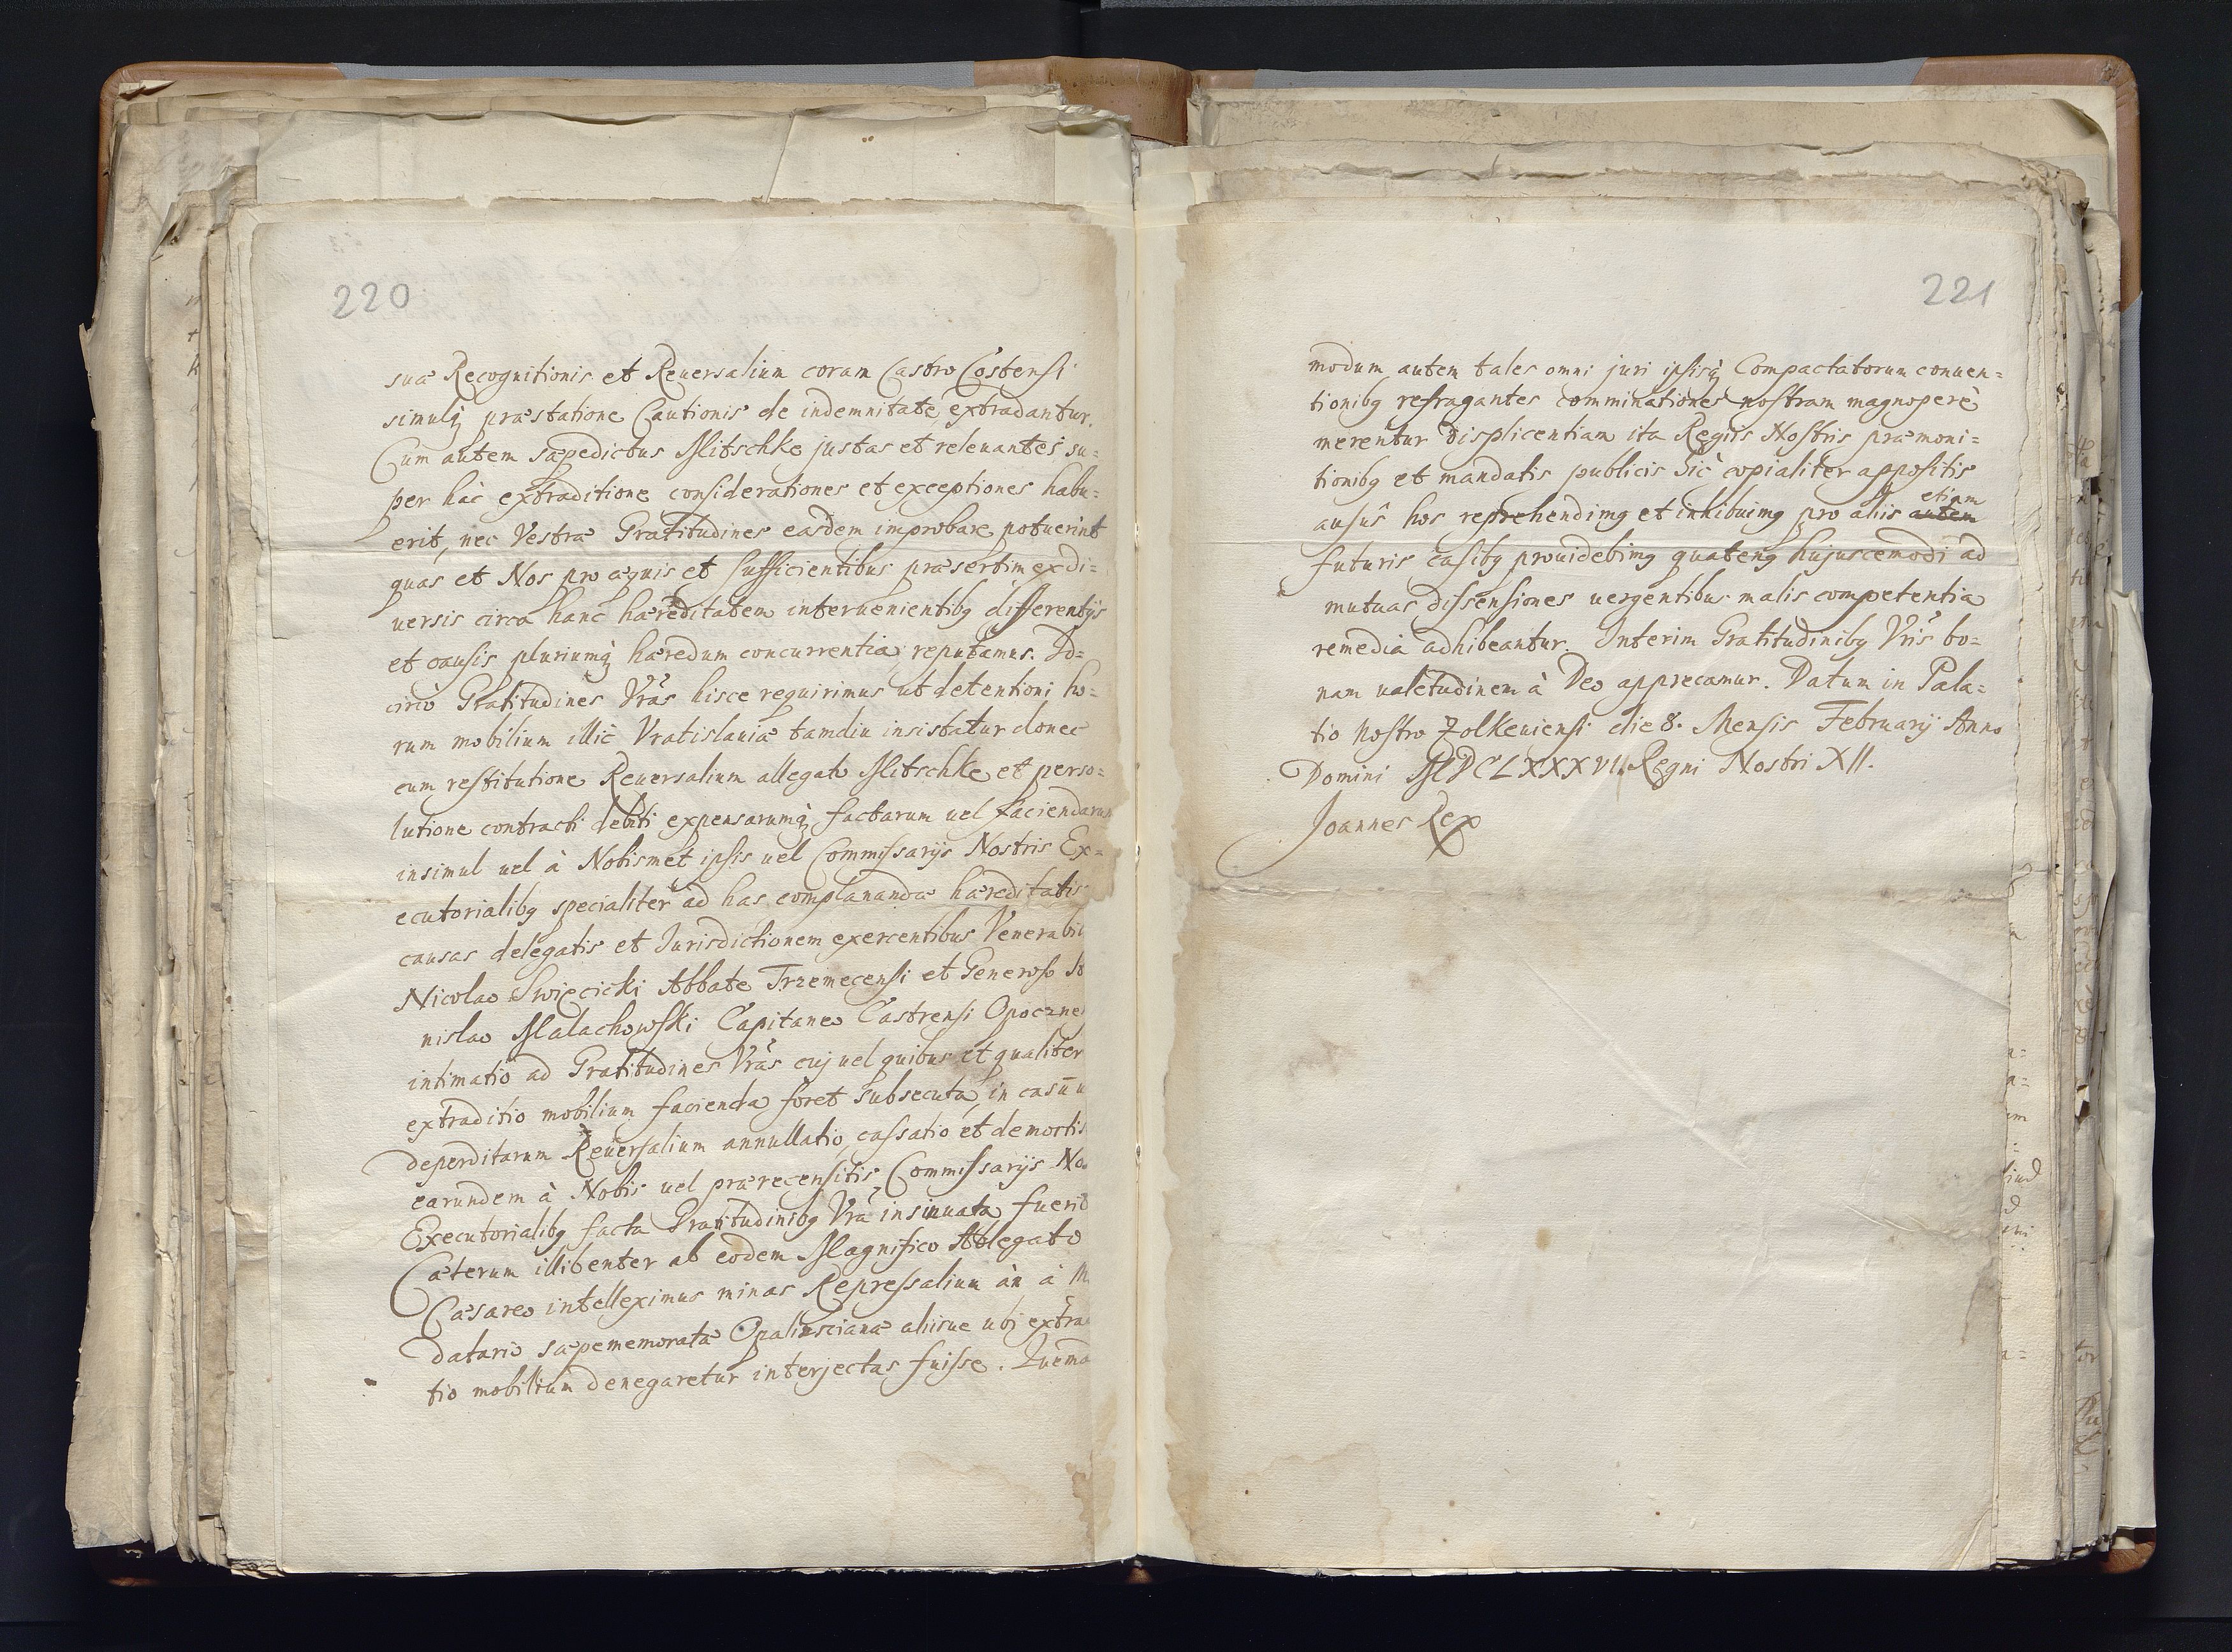 220
suæ Recognitionis et Reuersalium coram Castro Costensi
simulq præstatione Cautionis de indemnitate, extradantur.
Cum autem sæpedictus Mitschke justas et releuantes su=
per hâc extraditione considerationes et exceptiones habu=
erit, nec Vestræ Gratitudines easdem improbare potuerint
quas et Nos pro æquis et sufficientibus præsertim ex di=
uersis circa hanc hæreditatem interuenientibq differentijs
et causis pluriumq hæredum concurrentia reputamus. Id=
circò Gratitudines Vrãs hisce requirimus ut detentioni ho=
rum mobilium illic Vratislauiæ tamdiu insistatur donec
cum restitutione Reuersalium allegato Mitschke et perso=
lutione contracti debiti expensarumq factarum uel faciendarum
insimul uel à Nobismet ipsis uel Commissarijs Nostris Ex=
ecutorialibq specialiter ad has complanandæ hæreditatis
causas delegatis et Jurisdictionem exercentibus Venerabil
Nicolao Swięcicki Abbate Trzemecensi et Generoso
nislao Malachowski Capitaneo Castrensi Opoczne
intimatio ad Gratitudines Vrãs cuj uel quibus et qualiter
extraditio mobilium facienda foret subsecuta, in casũ u
deperditarum Reuersalium annullatio, cassatio et demortis
earundem à Nobis uel præerecensitis Commissarijs No
Executorialibq facta Gratitudinibq Vrã insinuata fueri
Cæterum illibenter ab eodem Magnifico Ablegato
Cæsareo intelleximus minas Repressalium àn à M
datario sæpememoratæ Opalinscianæ aliisue ubi extra
tio mobilium denegaretur interjectas fuisse. Quema
221
modum autem tales omni juri ipsisq Compactatorum conuen=
tionibq refragantes comminationes nostram magnoperè
merentur displicentiam ita Regiis Nostris præmoni=
tionibq et mandatis publicis sic copialiter appositis
ausûs hos reprehendimq et inhibuimq pro aliis autem etiam
futuris casibq prouidebimq quatenq hujuscemodi ad
mutuas dissensiones uergentibus malis competentia
remedia adhibeantur. Interim Gratitudinibq Vrĩs bo=
nam ualetudinem à Deo apprecamur. Datum in Pala=
tio Nostro Zolkeuiensi die 8. Mensis Februarij Anno
Domini MDCLXXXVII. Regni Nostri XII.
Joannes Rex